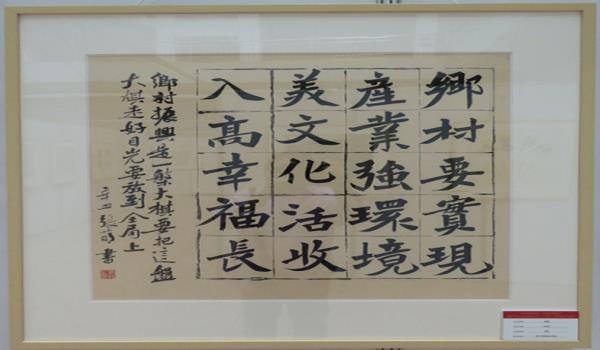 鄉村要實現
產業強環境
美文化活收
入高幸福長
鄉村振興是一盤大棋要把這盤
大棋走好目光要放到全局上
辛丑張書